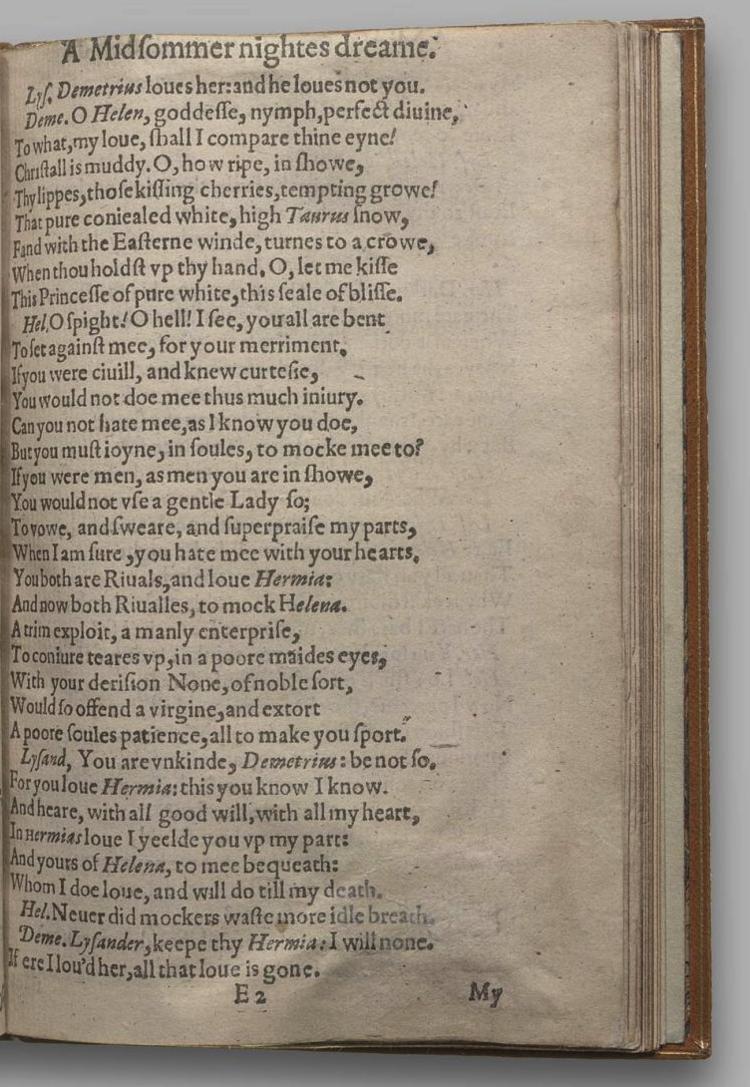 A Midſommer nightes dreame.
Lyſ. Demetrius loues her: and he loues not you.
Deme. O Helen, goddeſſe, nymph, perfect diuine,
To what, my loue, ſhall I compare thine eyne!
Chriſtall is muddy. O, how ripe, in ſhowe,
Thy lippes, thoſe kiſſing cherries, tempting growe!
That pure coniealed white, high Taurus ſnow,
Fand with the Eaſterne winde, turnes to a crowe,
When thou holdſt vp thy hand. O, let me kiſſe
This Princeſſe of pure white, this ſeale of bliſſe.
Hel. O ſpight! O hell! I ſee, you all are bent
To ſet againſt mee, for your merriment.
If you were ciuill, and knew curteſie,
You would not doe mee thus much iniury.
Can you not hate mee, as I know you doe,
But you muſt ioyne, in ſoules, to mocke mee to?
If you were men, as men you are in ſhowe,
You would not vſe a gentle Lady ſo;
To vowe, and ſweare, and ſuperpraiſe my parts,
When I am ſure, you hate mee with your hearts.
You both are Riuals, and loue Hermia:
And now both Riualles, to mock Helena.
A trim exploit, a manly enterpriſe,
To coniure teares vp, in a poore maides eyes,
With your deriſion None, of noble ſort,
Would ſo offend a virgine, and extort
A poore ſoules patience, all to make you ſport.
Lyſand, You are vnkinde, Demetrius: be not ſo.
For you loue Hermia: this you know I know.
And heare, with all good will, with all my heart,
In Hermias loue I yeelde you vp my part:
And yours of Helena, to mee bequeath:
Whom I doe loue, and will do till my death.
Hel. Neuer did mockers waſte more idle breath.
Deme. Lyſander, keepe thy Hermia: I will none.
If ere I lou'd her, all that loue is gone.
E 2 My